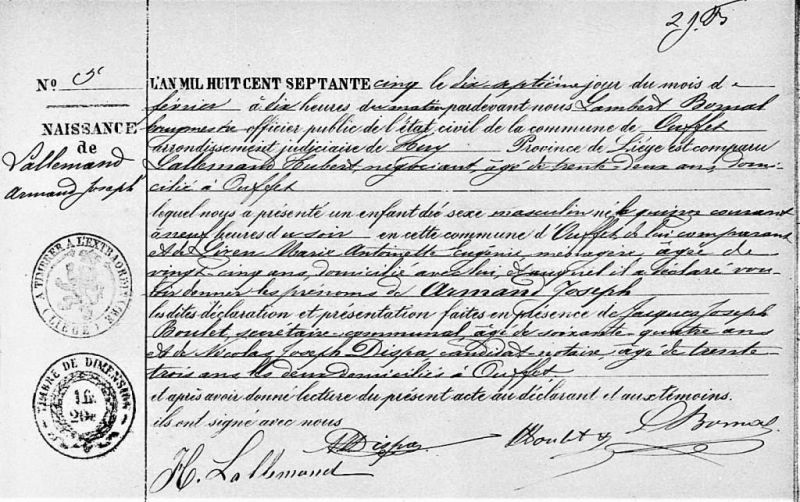 Nº 5
NAISSANCE
de
Lallemand
Armand Joseph
A TIMBRER A L'EXTRAORDINAIRE
(LIÉGE)
TIMBRE DE DIMENSION
1 fr.
20 c
L'AN MIL HUIT CENT SEPTANTE cinq le dix septième jour du mois de
février à dix heures du matin pardevant nous Lambert Bomal
bourgmestre officier public de l'état civil de la commune de Ouffet
arrondissement judiciaire de Huy Province de Liége est comparu
Lallemand Hubert, négociant, âgé de trente deux ans, domi-
cilié à Ouffet
lequel nous a présenté un enfant du sexe masculin né le quinze courant
à neuf heures du soir en cette commune d'Ouffet de lui comparant
et de Lizen Marie Antoinette Eugénie, ménagère, âgée de
vingt cinq ans, domiciliée avec lui, et auquel il a déclaré vou-
loir donner les prénoms de Armand Joseph
les dites déclaration et présentation faites en présence de Jacques Joseph
Boulet, secrétaire communal, âgé de soixante quatre ans
et de Nicolas Joseph Dispa candidat notaire, âgé de trente
trois ans les deux domiciliés à Ouffet
et après avoir donné lecture du présent acte au déclarant et aux témoins.
ils ont signé avec nous
Dispa Boulet Bomal
H. Lallemand